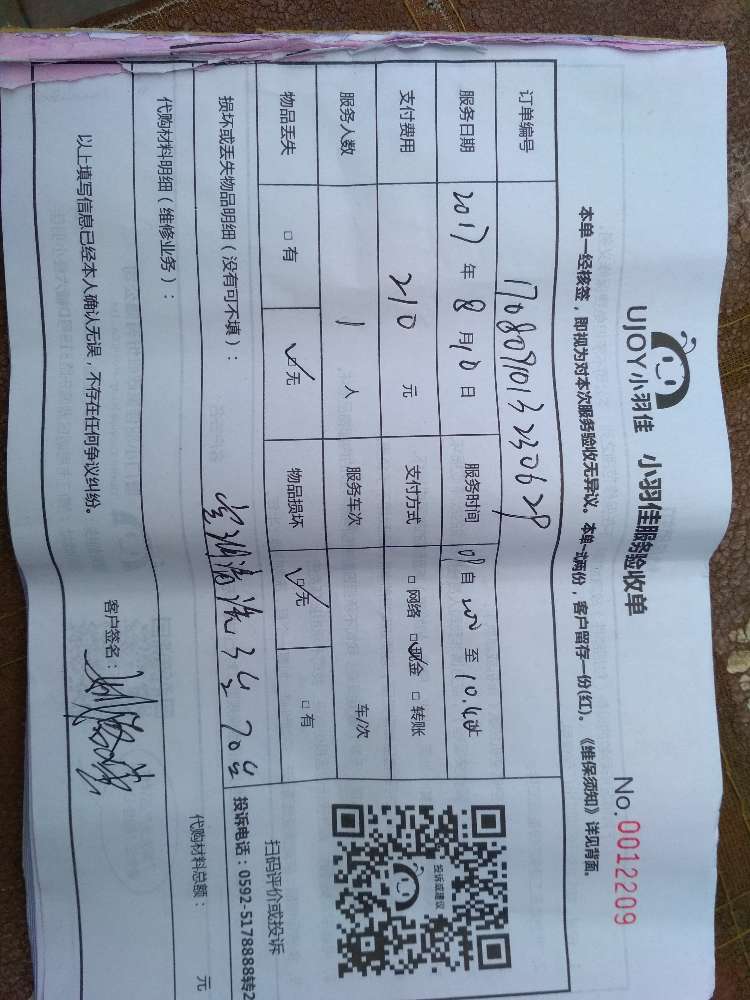 UJOY小羽佳 小羽佳服务验收单
No.0012209
本单一经核签，即视为对本次服务验收无异议。本单一式两份，客户留存一份(红)。《维保须知》详见背面。
订单编号
服务日期 2017 年 8 月 10 日 服务时间 自 至
支付费用 210 元 支付方式 □ 网络 □ 现金 □ 转账
服务人数 1 人 服务车次 车/次
物品丢失 □ 有 □ 无 物品损坏 □ 无 □ 有
投诉或建议
扫码评价或投诉
投诉电话：0592-5178888转2
损坏或丢失物品明细（没有可不填）：
空调清洗3台 70/台
代购材料明细（维修业务）：
代购材料总额： 元
以上填写信息已经本人确认无误，不存在任何争议纠纷。
客户签名：